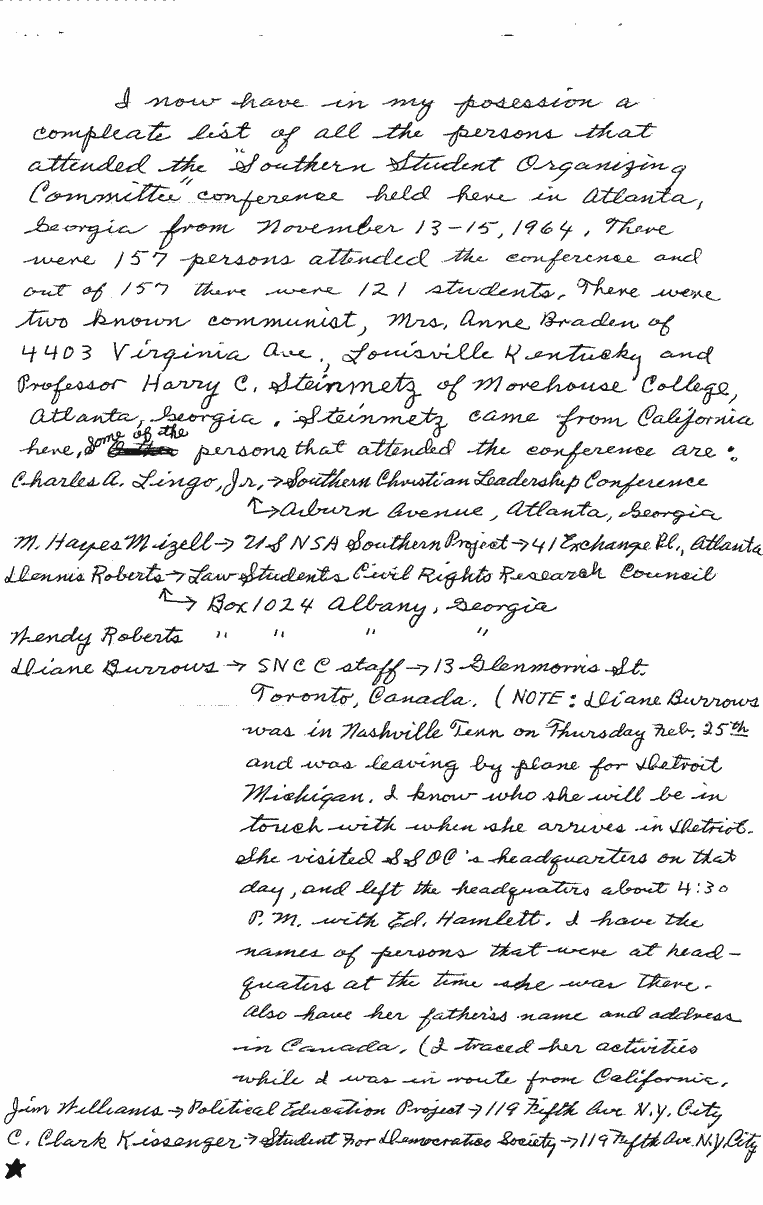 I now have in my posession a
compleate list of all the persons that
attended the "Southern Student Organizing
Committee" conference held here in Atlanta,
Georgia from November 13-15, 1964. There
were 157 persons attended the conference and
out of 157 there were 121 students. There were
two known communist, Mrs. Anne Braden of
4403 Virginia Ave., Louisville Kentucky and
Professor Harry C. Steinmetz of Morehouse College,
Atlanta, Georgia. Steinmetz came from California
here. Some of the persons that attended the conference are:
Charles A. Lingo, Jr, → Southern Christian Leadership Conference
↳ Auburn Avenue, Atlanta, Georgia
M. Hayes Mizell → US NSA Southern Project → 41 Exchange Pl., Atlanta
Dennis Roberts → Law Students Civil Rights Research Council
↳ Box 1024 Albany, Georgia
Wendy Roberts " " " "
Diane Burrows → SNCC staff → 13 Glenmorris St.
Toronto, Canada. (NOTE: Diane Burrows
was in Nashville Tenn on Thursday Feb. 25th
and was leaving by plane for Detroit
Michigan. I know who she will be in
touch with when she arrives in Detriot.
She visited SSOC's headquarters on that
day, and left the headquaters about 4:30
P.M. with Ed. Hamlett. I have the
names of persons that were at head-
quaters at the time she was there.
Also have her father's name and address
in Canada. (I traced her activities
while I was in route from California.
Jim Williams → Political Education Project → 119 Fifth Ave N.Y. City
C. Clark Kissenger → Student For Democratics Society → 119 Fifth Ave. N.Y. City
★